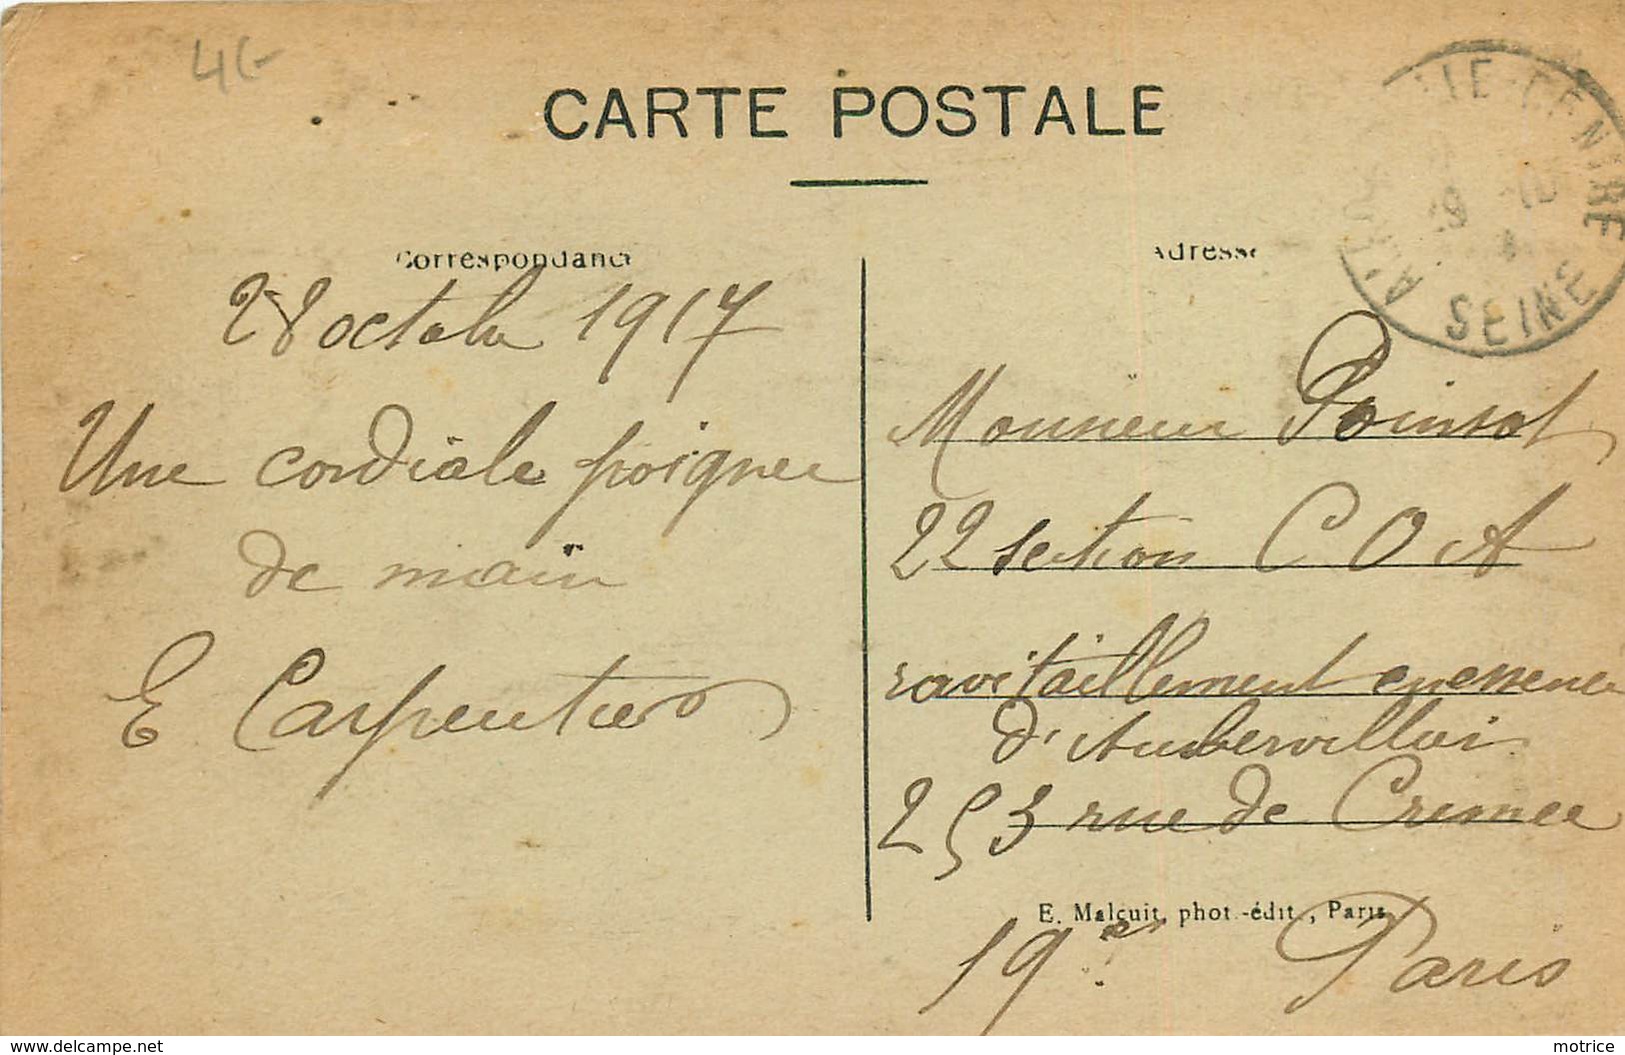 CARTE POSTALE
Correspondance
28 octobre 1917
Une cordiale poignee
de main
E Carpentier
Adresse
Monsieur Poinsot
22 section C O A
ravitaillement en essence
d'Aubervilliers
253 rue de Crimee
E. Malcuit, phot.-édit., Paris
19e Paris
SEINE
delcampe.net
motrice